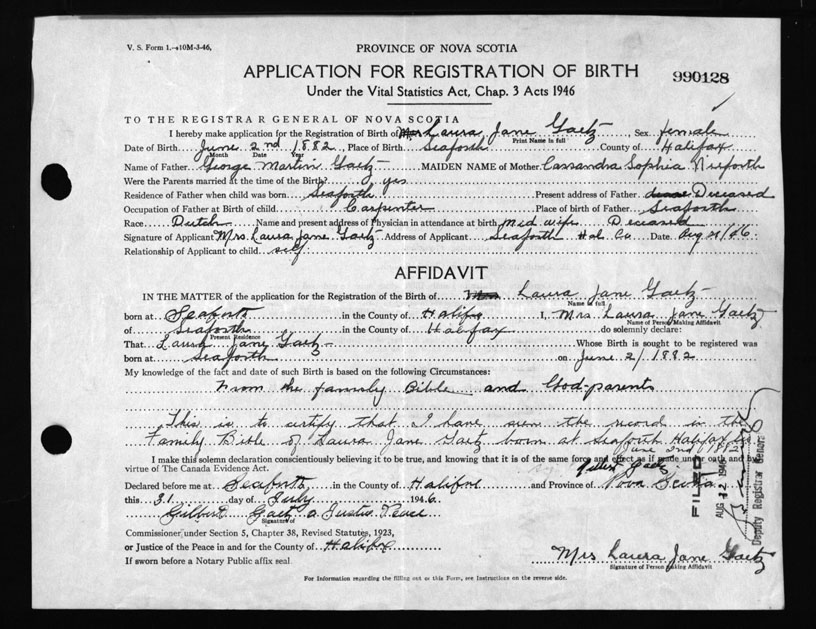 V. S. Form 1.—10M-3-46,
PROVINCE OF NOVA SCOTIA
APPLICATION FOR REGISTRATION OF BIRTH
990128
Under the Vital Statistics Act, Chap. 3 Acts 1946
TO THE REGISTRAR GENERAL OF NOVA SCOTIA
I hereby make application for the Registration of Birth of Laura Jane Gaetz, Sex female
Print Name in full
Date of Birth June 2nd 1882, Place of Birth Seaforth County of Halifax
Month Date Year
Name of Father George Martin Gaetz MAIDEN NAME of Mother Cassandra Sophia Nieforth
Were the Parents married at the time of the Birth? yes
Residence of Father when child was born Seaforth Present address of Father Deceased
Occupation of Father at Birth of child Carpenter Place of birth of Father Seaforth
Race Dutch Name and present address of Physician in attendance at birth Mid wife Deceased
Signature of Applicant Mrs. Laura Jane Gaetz Address of Applicant Seaforth Hal. Co. Date Aug
Relationship of Applicant to child self
AFFIDAVIT
IN THE MATTER of the application for the Registration of the Birth of Laura Jane Gaetz
Name in full
born at Seaforth in the County of Halifx I, Mrs Laura Jane Gaetz
Name of Person Making Affidavit
of Seaforth in the County of Halifax do solemnly declare:
Present Residence
That Laura Jane Gaetz Whose Birth is sought to be registered was
born at Seaforth on June 2/1882
My knowledge of the fact and date of such Birth is based on the following Circumstances:
From the family Bible and God-parents
This is to certify that I have seen the record in the
Family Bible of Laura Jane Gaetz born at Seaforth Halifax Co.
June 2nd 1882
I make this solemn declaration conscientiously believing it to be true, and knowing that it is of the same force and effect as if made under oath and by
virtue of The Canada Evidence Act.
Gilbert Gaetz
Declared before me at Seaforth in the County of Halifax and Province of Nova Scotia
this 31 day of July 1946
Gilbert Gaetz a Justus Peace
Signature of
Commissioner under Section 5, Chapter 38, Revised Statutes, 1923,
or Justice of the Peace in and for the County of Halifx
If sworn before a Notary Public affix seal
Mrs Laura Jane Gaetz
Signature of Person Making Affidavit
For Information regarding the filling out of this Form, see Instructions on the reverse side.
FILED
AUG 12 1946
Deputy Registrar General